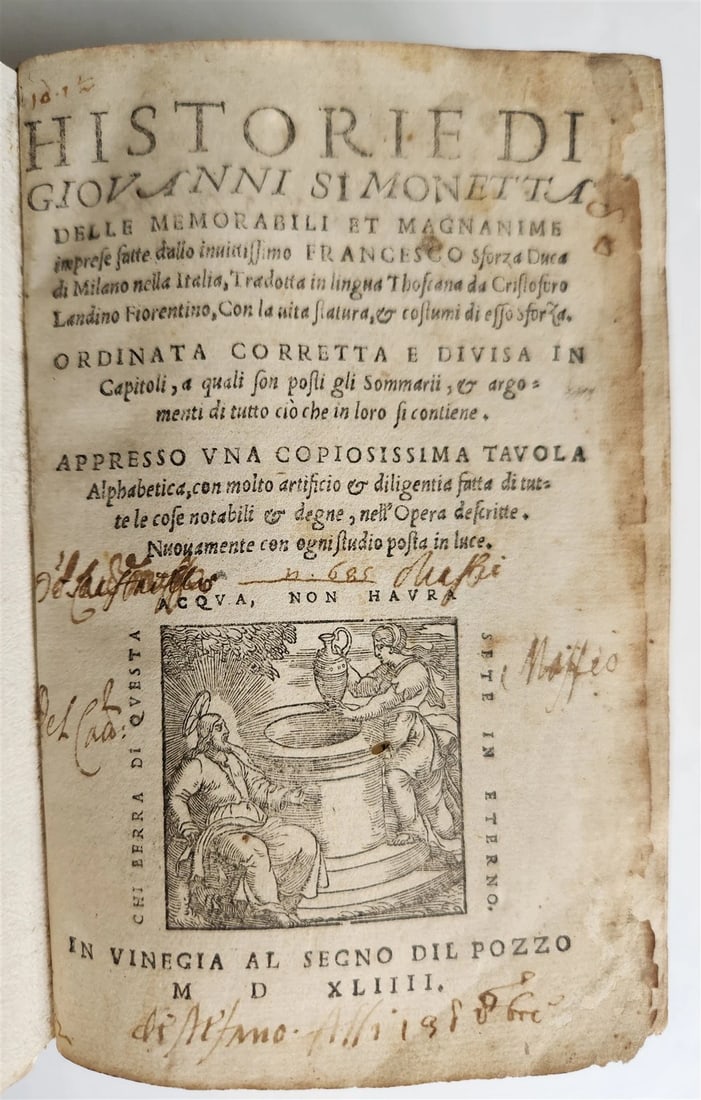 HISTORIE DI
GIOVANNI SIMONETTA
DELLE MEMORABILI ET MAGNANIME
imprese fatte dallo inuittissimo FRANCESCO Sforza Duca
di Milano nella Italia, Tradotta in lingua Thoscana da Cristoforo
Landino Fiorentino, Con la uita statura, & costumi di esso Sforza.
ORDINATA CORRETTA E DIVISA IN
Capitoli, a quali son posti gli Sommarii, & argo=
menti di tutto ciò che in loro si contiene.
APPRESSO VNA COPIOSISSIMA TAVOLA
Alphabetica, con molto artificio & diligentia fatta di tut=
te le cose notabili & degne, nell'Opera descritte.
Nuouamente con ogni studio posta in luce.
n. 685
CHI BERRA DI QVESTA
ACQVA, NON HAVRA
SETE IN ETERNO.
Maffio
IN VINEGIA AL SEGNO DIL POZZO
M D XLIIII.